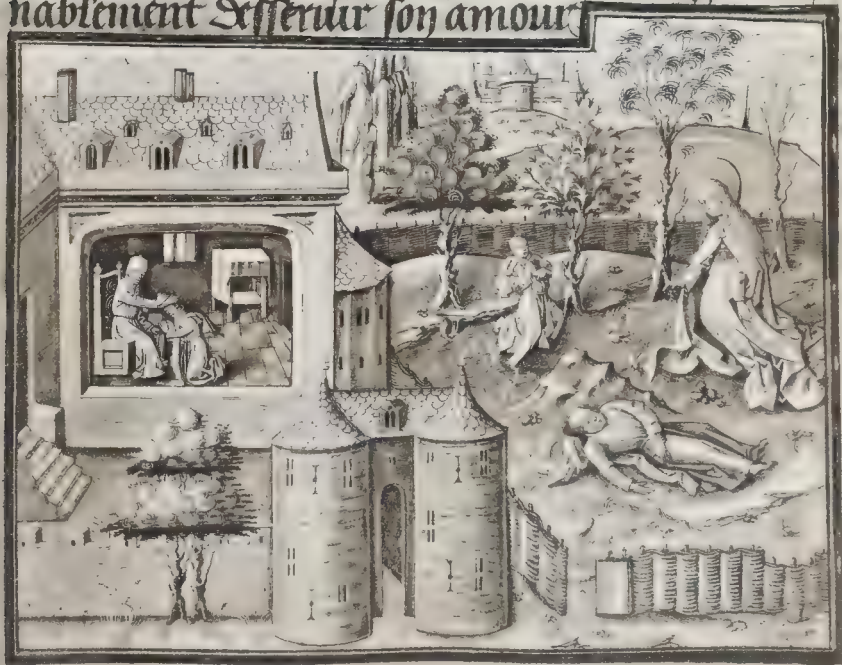 nablement desseruir son amour